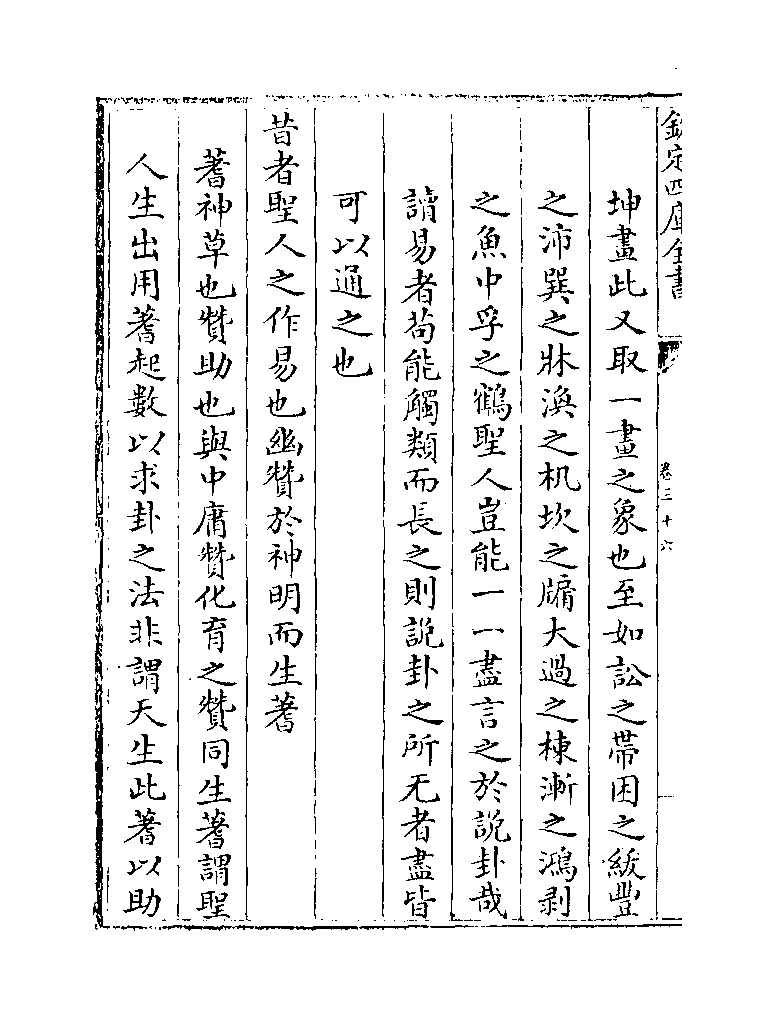 欽定四庫全書
卷三十六
坤畫此又取一畫之象也至如訟之帶困之紱豐
之沛巽之牀渙之机坎之牖大過之棟漸之鴻剥
之魚中孚之鶴聖人豈能一一盡言之於說卦哉
讀易者苟能觸類而長之則說卦之所无者盡皆
可以通之也
昔者聖人之作易也幽贊於神明而生蓍
蓍神草也贊助也與中庸贊化育之贊同生蓍謂聖
人生出用蓍起數以求卦之法非謂天生此蓍以助